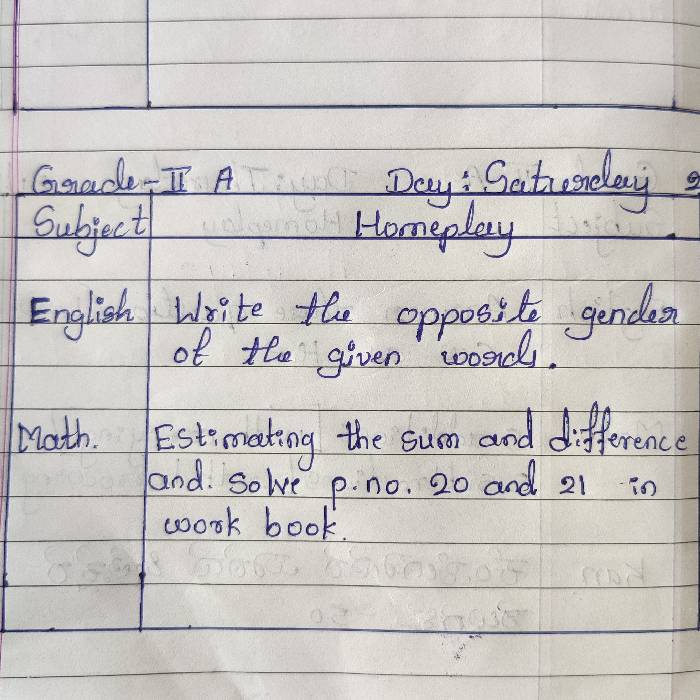 Grade-II A Day: Saturday
Subject Homeplay
English Write the opposite gender
of the given words.
Math. Estimating the sum and difference
and: Solve p.no. 20 and 21 in
work book.